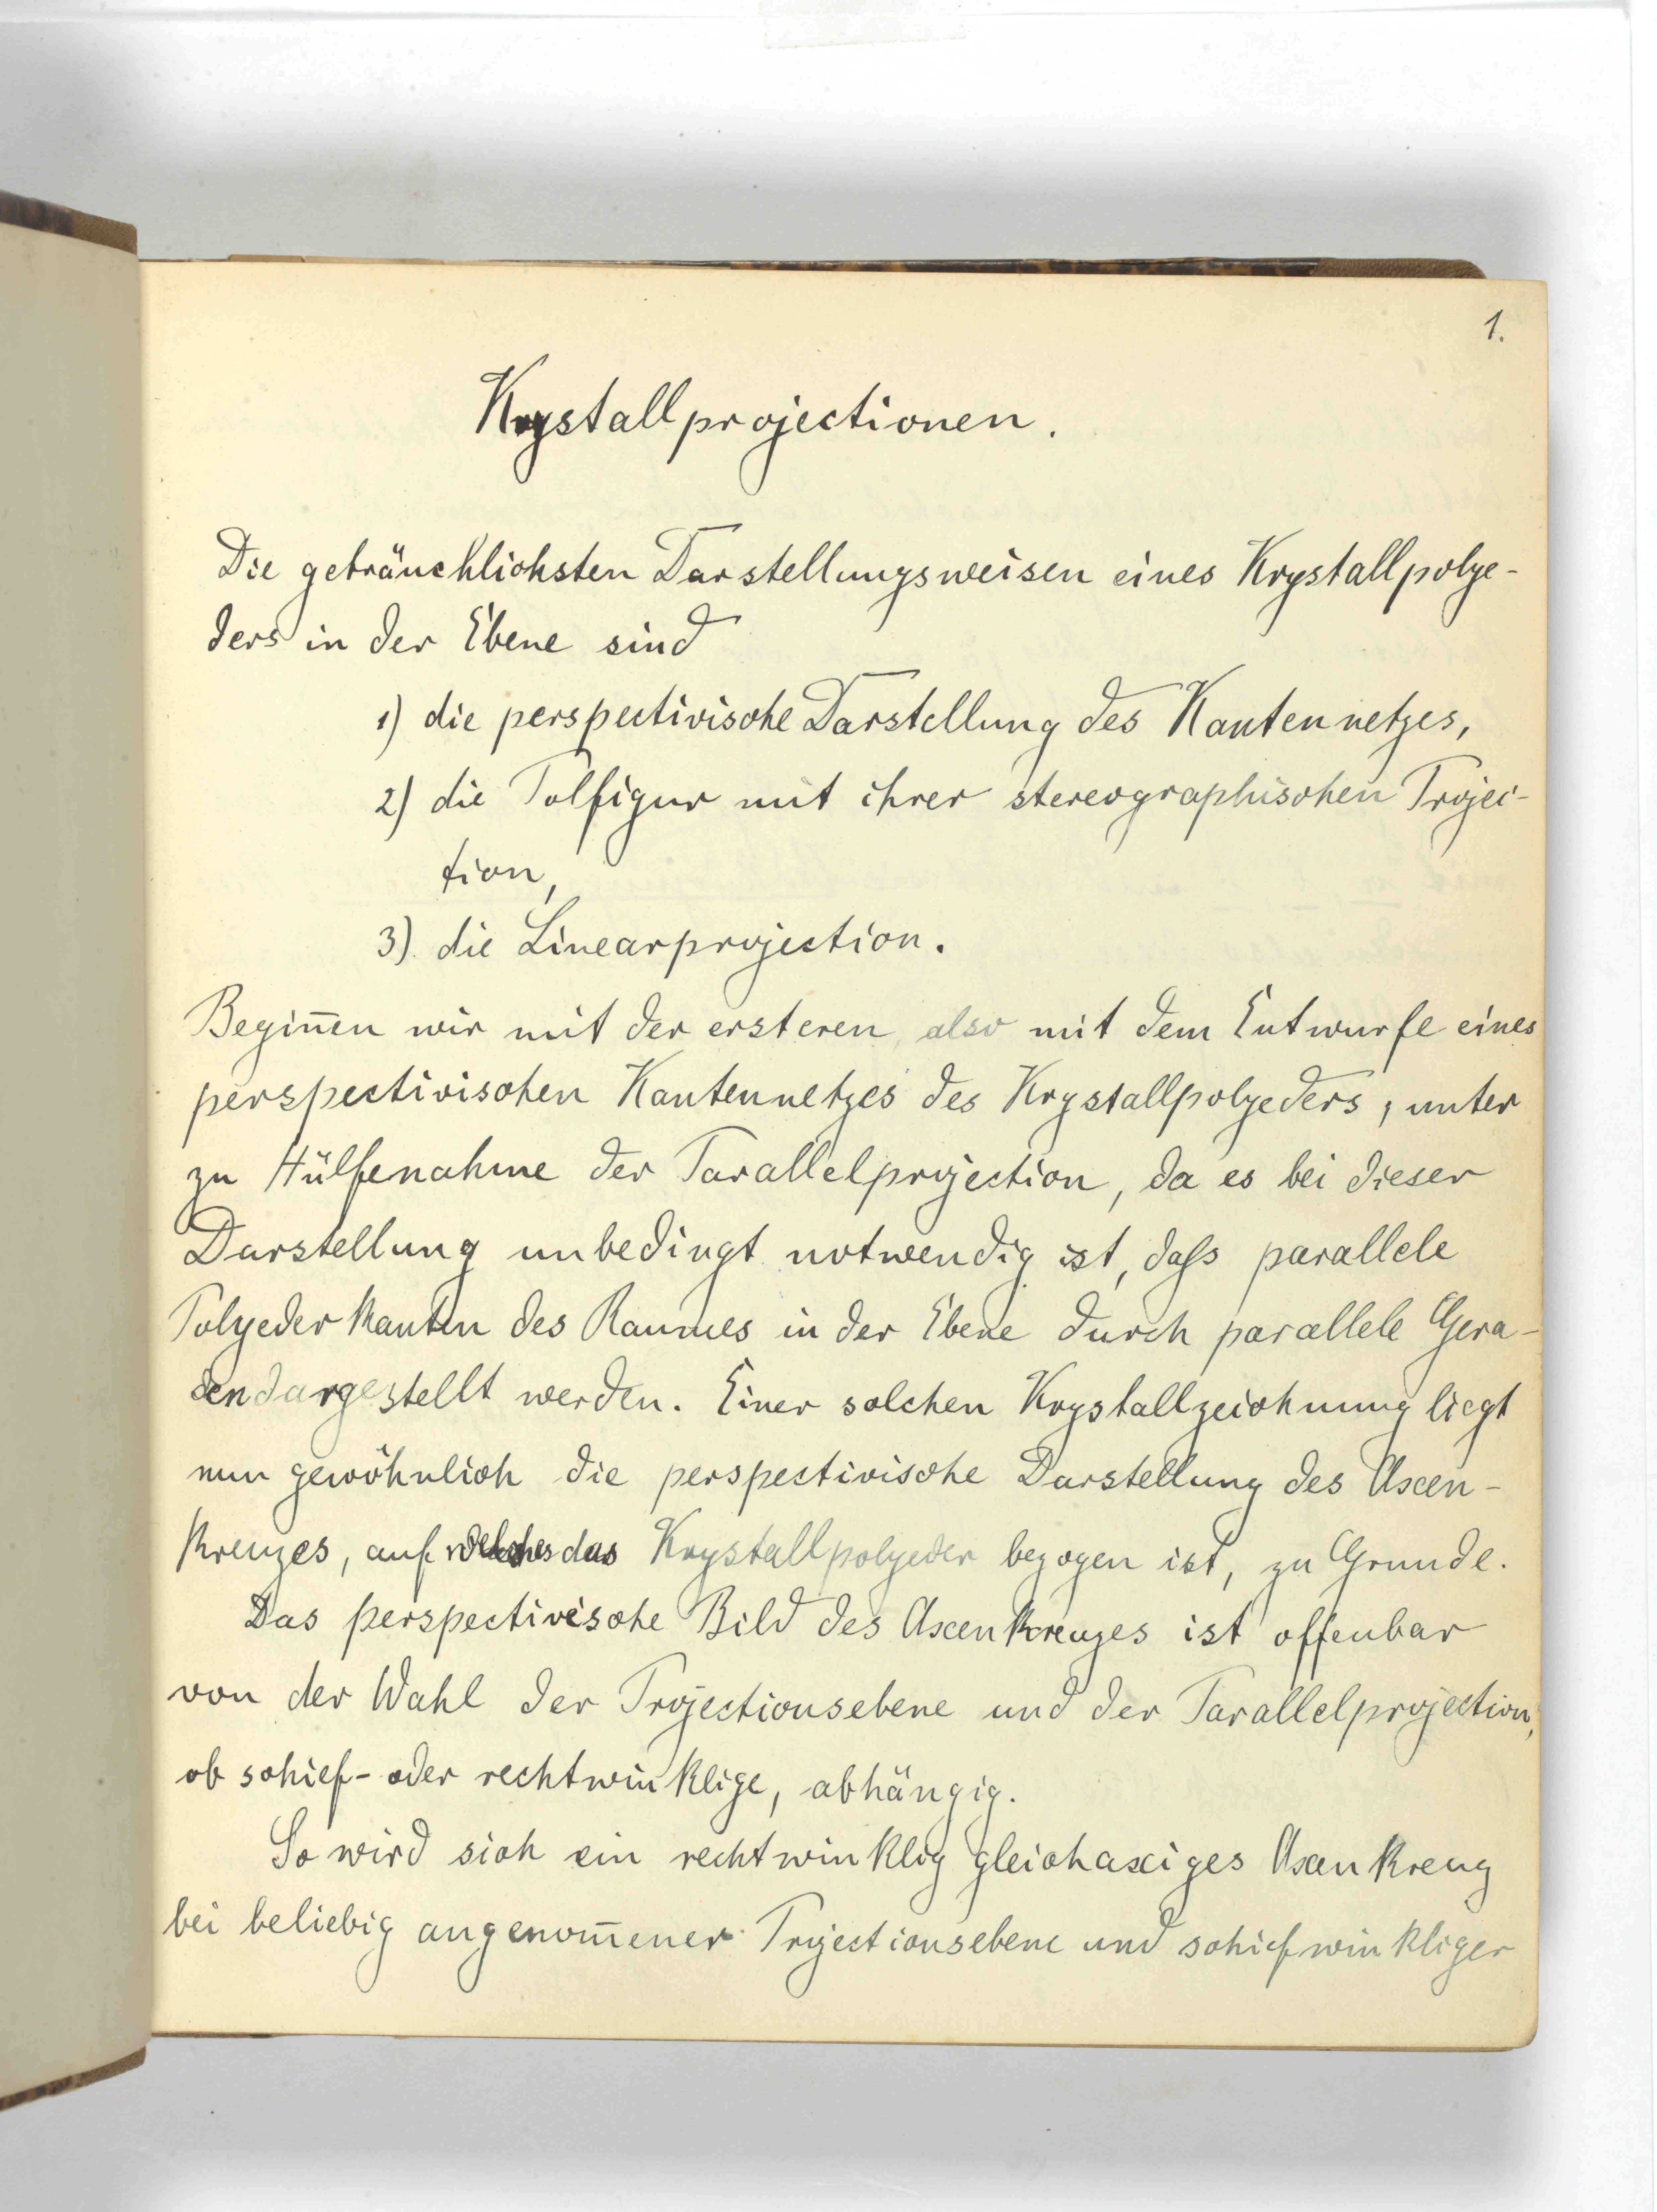 1.
Krystallprojectionen.
Die gebräuchlichsten Darstellungsweisen eines Krystallpolye-
ders in der Ebene sind
1) die perspectivische Darstellung des Kantennetzes,
2) die Polfigur mit ihrer stereographischen Projec-
tion,
3) die Linearprojection.
Begin̅en wir mit der ersteren, also mit dem Entwurfe eines
perspectivischen Kantennetzes des Krystallpolyeders, unter
zu Hülfenahme der Parallelprojection, da es bei dieser
Darstellung unbedingt notwendig ist, daſs parallele
Polyederkanten des Raumes in der Ebene durch parallele Gera-
den dargestellt werden. Einer solchen Krystallzeichnung liegt
nun gewöhnlich die perspectivische Darstellung des Axen-
kreuzes, auf welches das Krystallpolyeder bezogen ist, zu Grunde.
Das perspectivische Bild des Axenkreuzes ist offenbar
von der Wahl der Projectionsebene und der Parallelprojection,
ob schief- oder rechtwinklige, abhängig.
So wird sich ein rechtwinklig gleichaxiges Axenkreuz
bei beliebig angenom̅ener Projectionsebene und schiefwinkliger